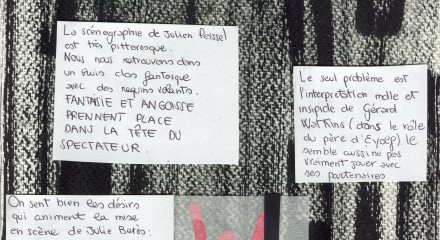 La scénographie de Julien Peissel
est très pittoresque.
Nous nous retrouvons dans
un huis clos fantasque
avec des requins volants.
FANTAISIE ET ANGOISSE
PRENNENT PLACE
DANS LA TÊTE DU
SPECTATEUR.
Le seul problème est
l'interprétation molle et
insipide de Gérard
Watkins (dans le rôle
du père d'Eyolf). Il
semble aussi ne pas
vraiment jouer avec
ses partenaires
On sent bien les désirs
qui animent la mise
en scène de Julie Berès: